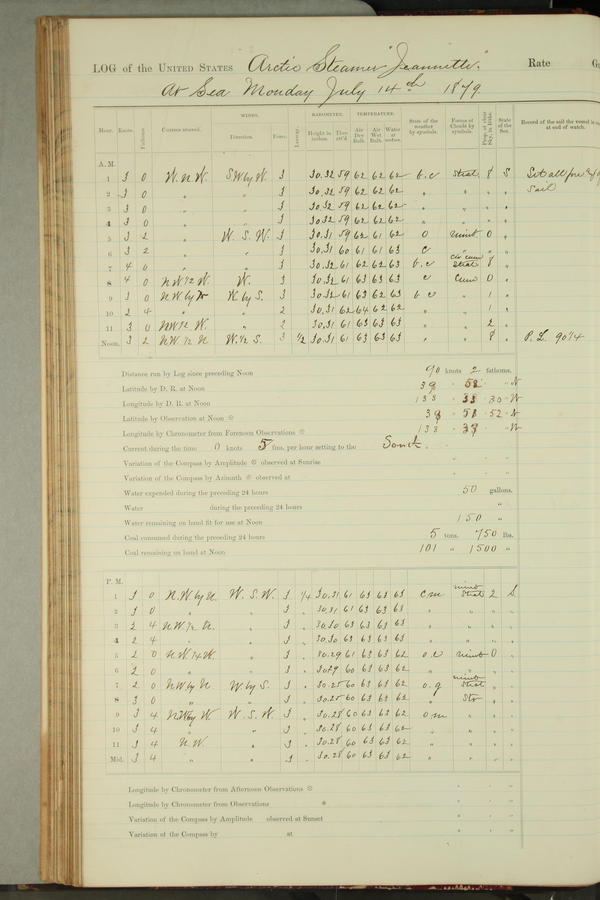 LOG of the UNITED STATES Arctic Steamer "Jeannette." Rate
At Sea Monday July 14th 1879
WINDS. BAROMETER. TEMPERATURE.
Hour. Knots. Fathoms. Courses steered. Direction. Force. Leeway. Height in inches. Ther. att'd. Air Dry Bulb. Air Wet Bulb. Water at surface. State of the weather by symbols. Forms of Clouds by symbols. Prop. of clear Sky, in 10ths. State of the Sea. Record of the sail the vessel is at end of watch.
A. M.
1 3 0 W. N W. SW by W. 3 30.32 59 62 62 62 b. c strat 8 S Set all fore
2 3 0 " " 3 30.32 59 62 62 62 " " " " Sail
3 3 0 " " 3 30.32 59 62 62 62 " " " "
4 3 0 " " 3 30.32 59 62 62 62 " " " "
5 3 2 " W. S. W. 3 30.31 59 62 61 62 O nimb 0 "
6 3 2 " " 3 30.31 60 61 61 63 c " " "
7 4 0 " " 3 30.32 61 62 62 63 b. c cir cum strat 8 "
8 4 0 NW 1/2 W. W. 3 30.32 61 63 63 63 c Cum 0 "
9 3 0 NW by W W. by S. 3 30.32 61 63 62 63 b c " 1 "
10 2 4 " " 2 30.31 62 64 62 62 " " 1 "
11 3 0 NW 1/2 W. " 2 30.31 61 63 63 63 " " 2 "
Noon. 3 2 NW. 1/2 N W. 1/2 S. 3 1/2 30.31 61 63 63 63 " " 8 " P. L. 90 1/4
Distance run by Log since preceding Noon 90 knots 2 fathoms.
Latitude by D. R. at Noon " N
Longitude by D. R. at Noon 138 " 33 30 W
Latitude by Observation at Noon 52 N
Longitude by Chronometer from Forenoon Observations 138 " W
Current during the time 0 knots 5 fms. per hour setting to the South.
Variation of the Compass by Amplitude observed at Sunrise
Variation of the Compass by Azimuth observed at
Water expended during the preceding 24 hours 50 gallons.
Water during the preceding 24 hours "
Water remaining on hand fit for use at Noon 150 "
Coal consumed during the preceding 24 hours 5 tons. 750 lbs.
Coal remaining on hand at Noon 101 " 1500 "
P. M.
1 3 0 N.W. by N. W. S. W. 3 1/4 30.31 61 63 63 63 c m nimb strat 2 S
2 3 0 " " 3 " 30.31 61 63 63 63 " " " "
3 2 4 NW 1/2 N. " 3 " 30.30 63 63 63 63 " " " "
4 2 4 " " 3 " 30.30 63 63 63 63 " " " "
5 2 0 NW 1/4 W. " 3 " 30.29 61 63 63 62 o. c nimb 0 "
6 2 0 " " 3 " 30.29 60 63 63 62 " " " "
7 2 0 NW by N W by S. 3 " 30.25 60 63 63 62 o. g nimb strat " "
8 3 0 " " 3 " 30.25 60 63 63 62 " Str " "
9 3 4 NW by W W. S. W. 3 " 30.28 60 63 63 62 o m " " "
10 3 4 " " 3 " 30.28 60 63 63 62 " " " "
11 3 4 N. W. " 3 " 30.28 60 63 63 62 " " " "
Mid. 3 4 " " 3 " 30.28 60 63 63 62 " " " "
Longitude by Chronometer from Afternoon Observations
Longitude by Chronometer from Observations
Variation of the Compass by Amplitude observed at Sunset
Variation of the Compass by at